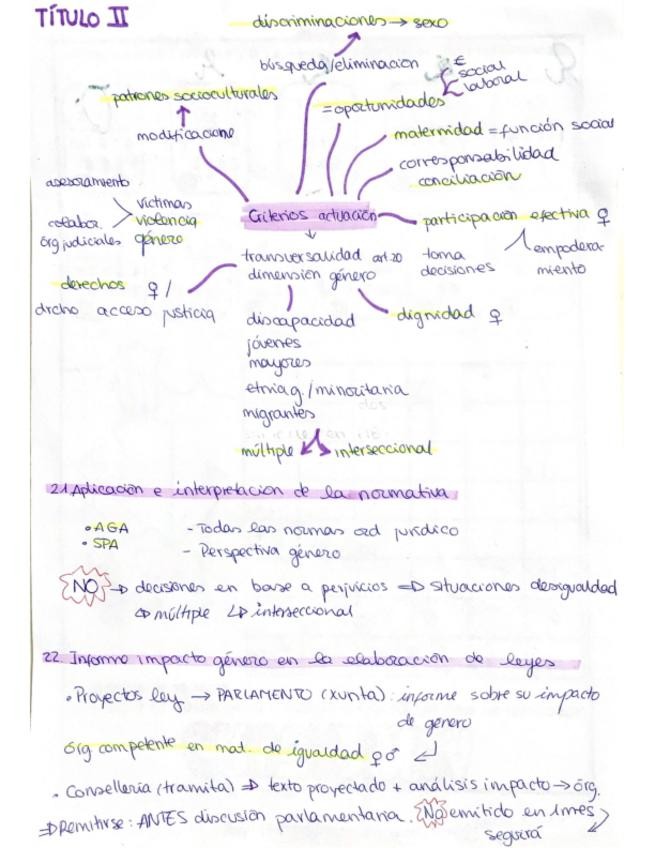 TÍTULO II
discriminaciones → sexo
búsqueda/eliminación
€
social
laboral
= oportunidades
patrones socioculturales
modificacione
maternidad = función social
corresponsabilidad
conciliación
asesoramiento
víctimas
violencia
género
colabor.
órg judiciales
Criterios actuación
participación efectiva ♀
toma
decisiones
empodera-
miento
transversalidad art.20
dimensión género
derechos ♀ /
drcho acceso justicia
dignidad ♀
discapacidad
jóvenes
mayores
etnia g./minoritaria
migrantes
múltiple interseccional
21. Aplicación e interpretación de la normativa
• AGA - Todas las normas ord jurídico
• SPA - Perspectiva género
NO → decisiones en base a perjuicios ⇒ situaciones desigualdad
↳ múltiple ↳ interseccional
22. Informe impacto género en la elaboración de leyes
• Proyectos ley → PARLAMENTO (Xunta): informe sobre su impacto
de género
órg competente en mat. de igualdad ♀♂
• Consellería (tramita) ⇒ texto proyectado + análisis impacto → órg.
⇒ Remitirse: ANTES discusión parlamentaria. No emitido en 1 mes
seguirá